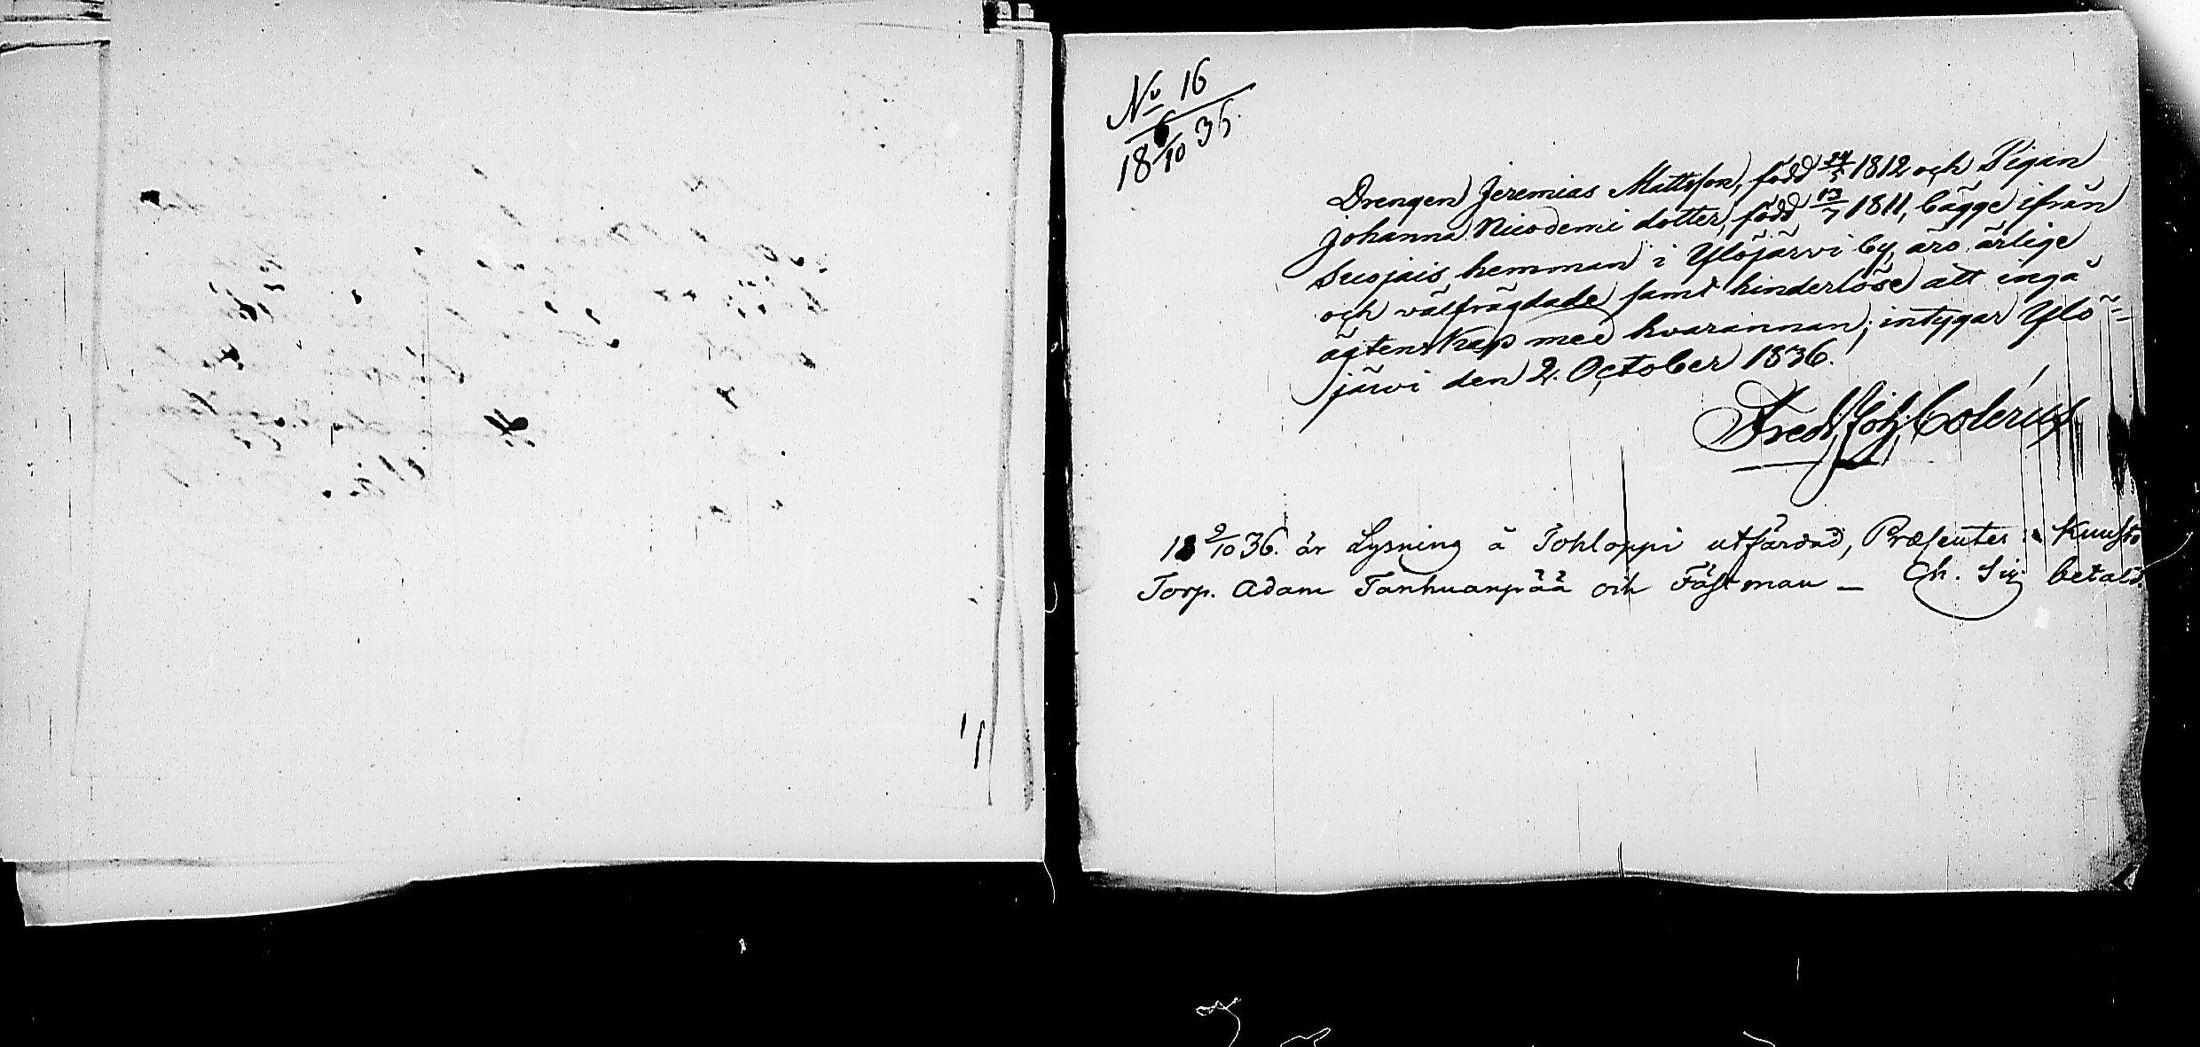 No 16
18 6/10 36.
Drengen Jeremias Mattsson, född 24/5 1812 och Pigan
Johanna Nicodemi dotter, född 13/7 1811, bägge ifrån
Suojais hemman i Ylöjärvi by, äro ärlige
och välfrägdade samt hinderlöse att ingå
ägtenskap med hvarannan; intygar Ylö=
järvi den 2. October 1836.
Fred. Joh. Colérus
18 9/10 36. är Lysning å Tohloppi utfärdad, Præsentes:
Torp. Adam Tanhuanpää och Fästman — betald.